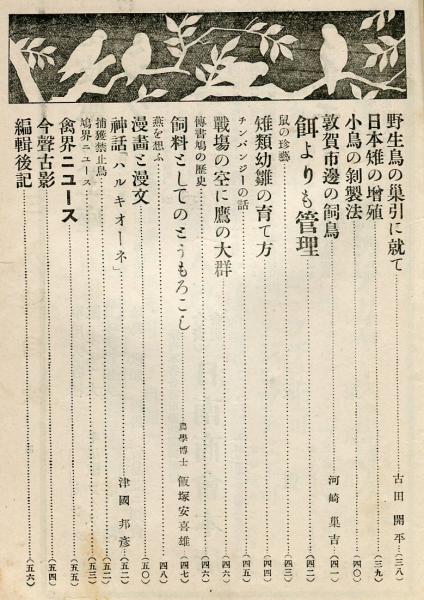 野生鳥の巢引に就て 古田開平 (三八)
日本雉の增殖 (三九)
小鳥の剝製法 (四〇)
敦賀市邊の飼鳥 河崎巢吉 (四一)
餌よりも管理 (四二)
鼠の珍藝 (四三)
雉類幼雛の育て方 (四四)
チンパンジーの話 (四五)
戰場の空に鷹の大群 (四六)
傳書鳩の歷史 (四六)
飼料としてのとうもろこし 農學博士 飯塚安喜雄 (四七)
燕を想ふ (四八)
漫畵と漫文 (五〇)
神話「ハルキオーネ」 津國邦彥 (五二)
捕獲禁止鳥 (五二)
鳩界ニュース (五三)
禽界ニュース (五五)
今聲古影 (五四)
編輯後記 (五六)